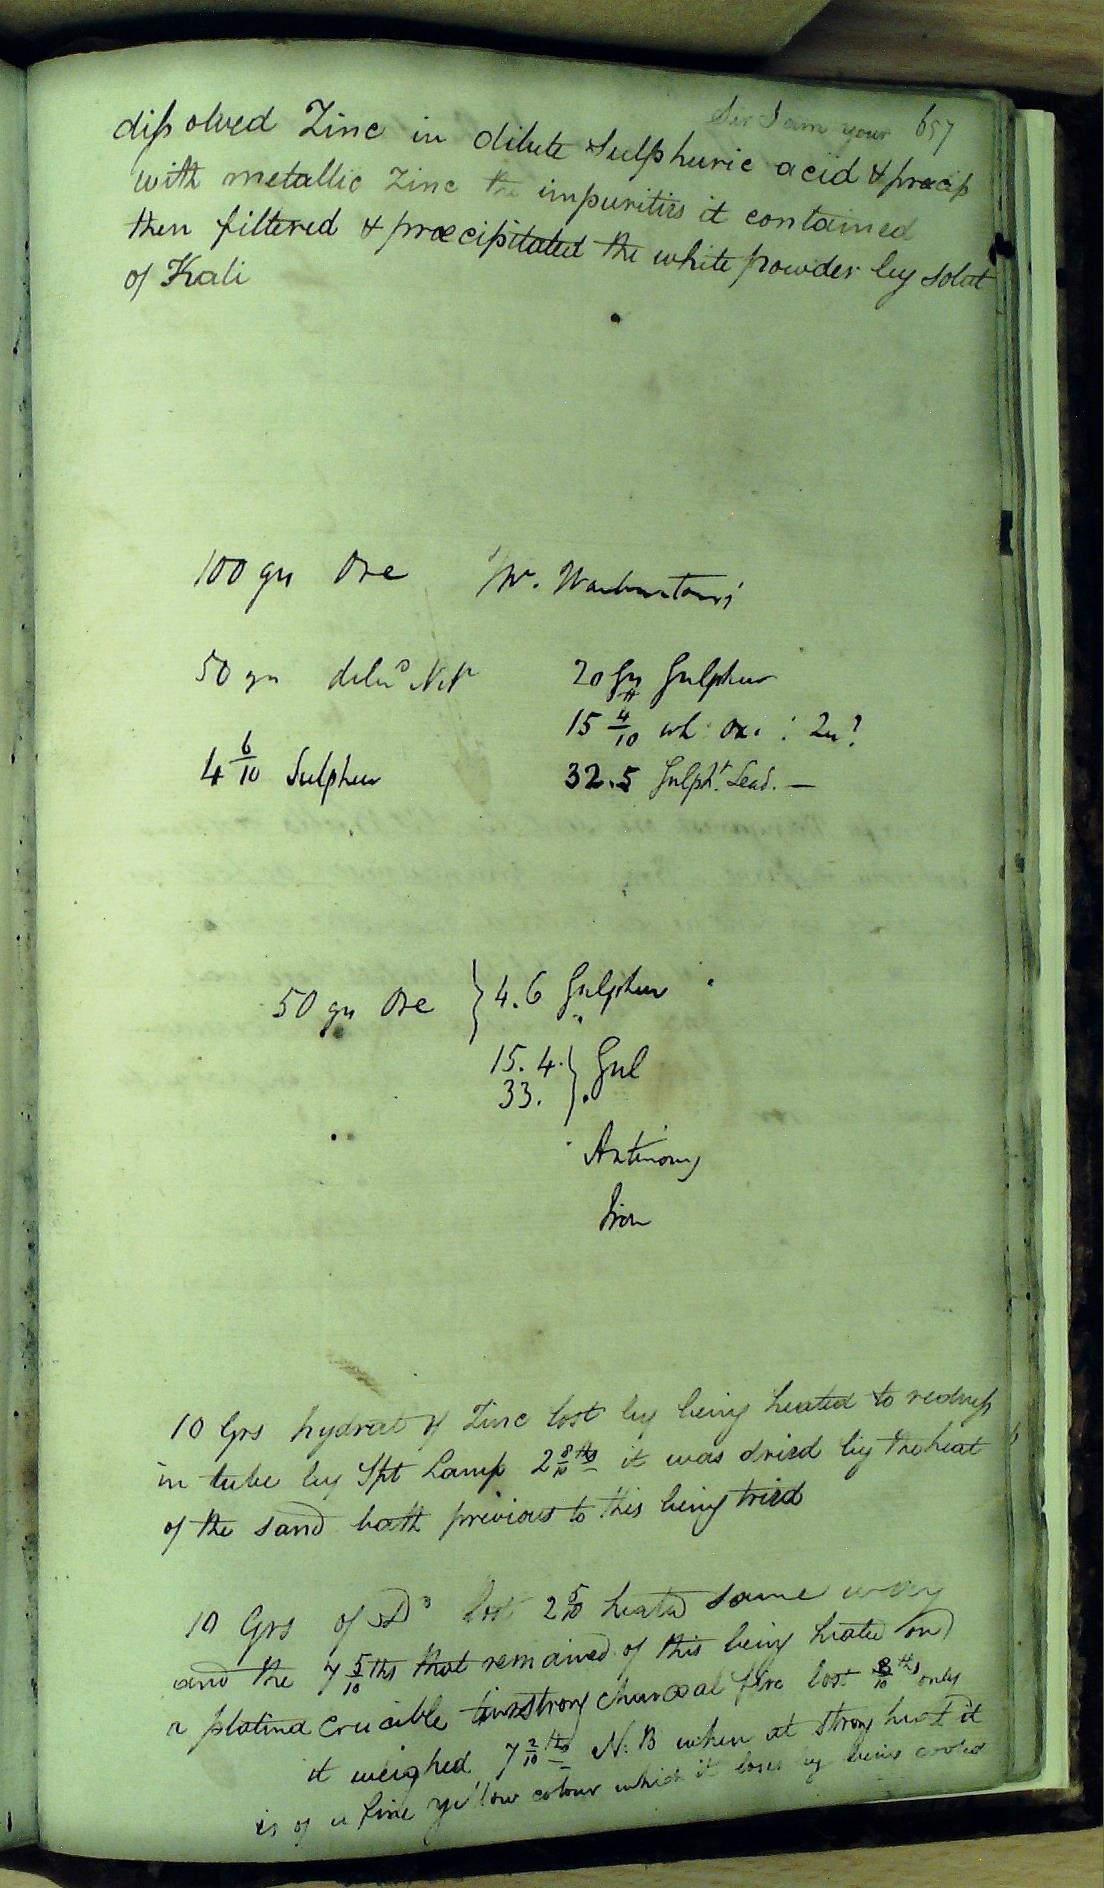 Sir I am your 657
dissolved Zinc in dilute Sulphuric acid & præcip
with metallic Zinc the impurities it contained
then filtered & præcipitated the white powder by solut
of Kali
100 grs Ore Mr. Warburton's
50 grs dilu^d Nit^r 20 Grs Sulphur
15 4/10 wh: ox: : Zn?
4 6/10 Sulphur 32.5 Sulph^t Lead. —
50 grs Ore } 4.6 Sulphur
15.4. } Sul
33.
Antimony
Iron
10 Grs hydrat of Zinc lost by being heated to redness
in tube by Spt Lamp 2 8/10ths it was dried by the heat
of the sand bath previous to this being tried
10 Grs of D^o lost 2 5/10 heated same way
and the 7 5/10ths that remained of this being heated in
a platina crucible in strong charcoal fire lost 3/10ths only
it weighed 7 2/10ths N:B when at strong heat it
is of a fine yellow colour which it loses by being cooled